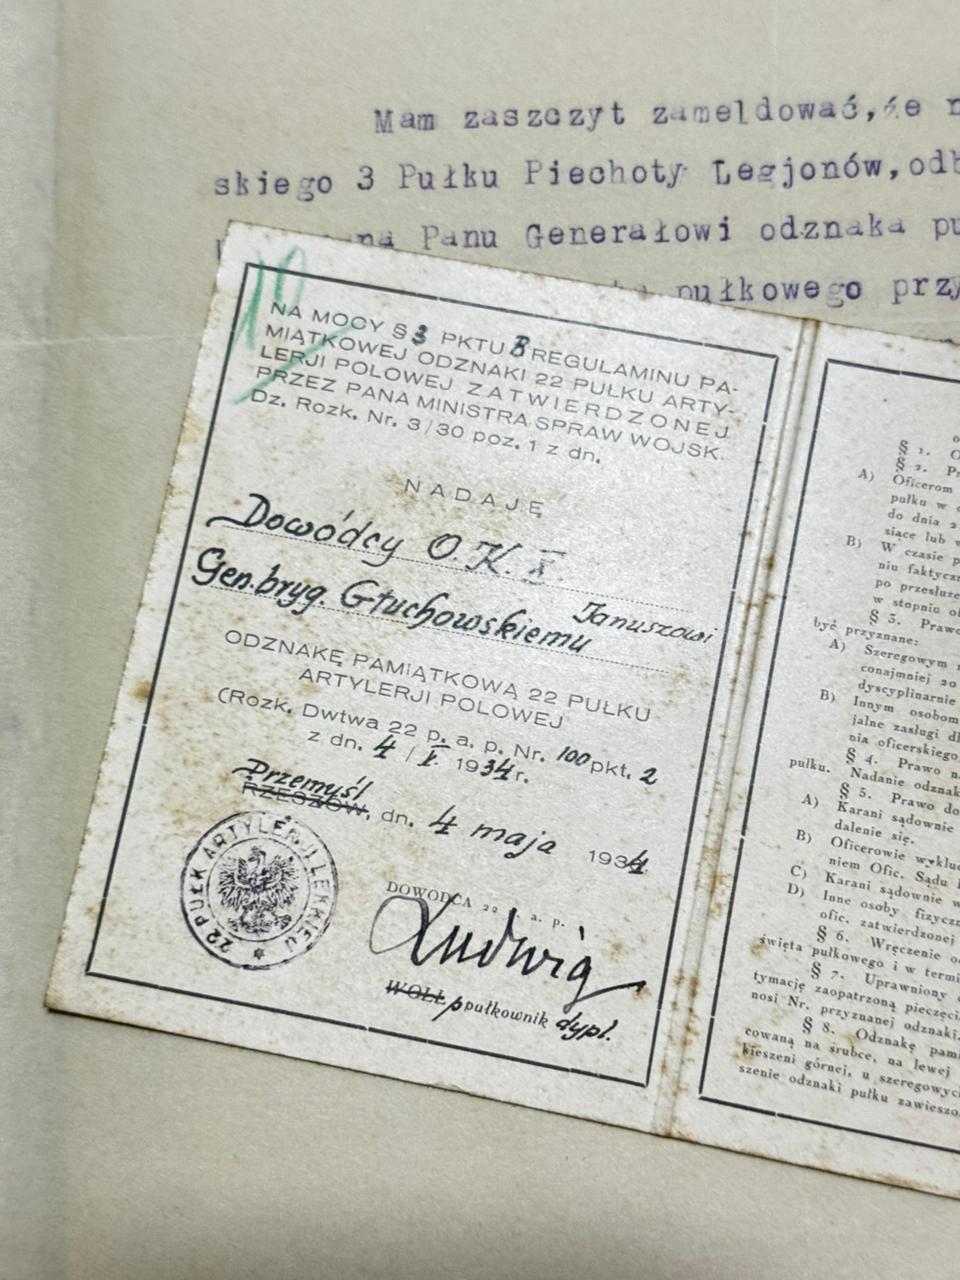 Mam zaszczyt zameldować,że
skiego 3 Pułku Piechoty Legjonów,odb
na Panu Generałowi odznaka pu
pułkowego przy
NA MOCY § 3 PKTU B REGULAMINU PA-
MIĄTKOWEJ ODZNAKI 22 PUŁKU ARTY-
LERJI POLOWEJ ZATWIERDZONEJ
PRZEZ PANA MINISTRA SPRAW WOJSK.
Dz. Rozk. Nr. 3/30 poz. 1 z dn.
NADAJĘ
Dowódcy O.K. X.
Januszowi
Gen.bryg. Głuchowskiemu
ODZNAKĘ PAMIĄTKOWĄ 22 PUŁKU
ARTYLERJI POLOWEJ
(Rozk. Dwtwa 22 p. a. p. Nr. 100 pkt. 2
z dn. 4 / V. 1934 r.
Przemyśl
RZESZÓW, dn. 4 maja 1934
22 PUŁK ARTYLERJI LEKKIEJ
DOWÓDCA 22 p. a. p.
Ludwig
WOLL ppułkownik dypl.
§ 1. O
§ 2. Pr
A) Oficerom
pułku w c
do dnia 2
siące lub w
B) W czasie p
niu faktyczn
po przesłuże
w stopniu of
§ 3. Prawo
być przyznane:
A) Szeregowym
conajmniej 20
dyscyplinarnie
B) Innym osobom
jalne zasługi dl
nia oficerskiego,
§ 4. Prawo na
pułku. Nadanie odznak
§ 5. Prawo do
A) Karani sądownie
dalenie się.
B) Oficerowie wykluc
niem Ofic. Sądu
C) Karani sądownie w
D) Inne osoby fizyczn
ofic. zatwierdzonej
§ 6. Wręczenie od
święta pułkowego i w termi
§ 7. Uprawniony
tymację zaopatrzoną pieczęcią
nosi Nr. przyznanej odznaki.
§ 8. Odznakę pami
cowaną na śrubce, na lewej
kieszeni górnej, u szeregowych
szenie odznaki pułku zawieszo